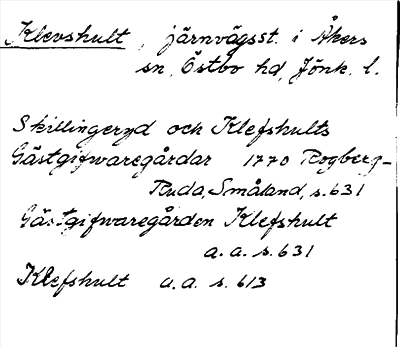 Klevshult, järnvägsst. i Åkers
sn, Östbo hd, Jönk. l.
Skillingeryd och Klefshults
Gästgifwaregårdar 1770 Rogberg-
Ruda, Småland, s. 631
Gästgifwaregården Klefshult
a. a. s. 631
Klefshult a. a. s. 613